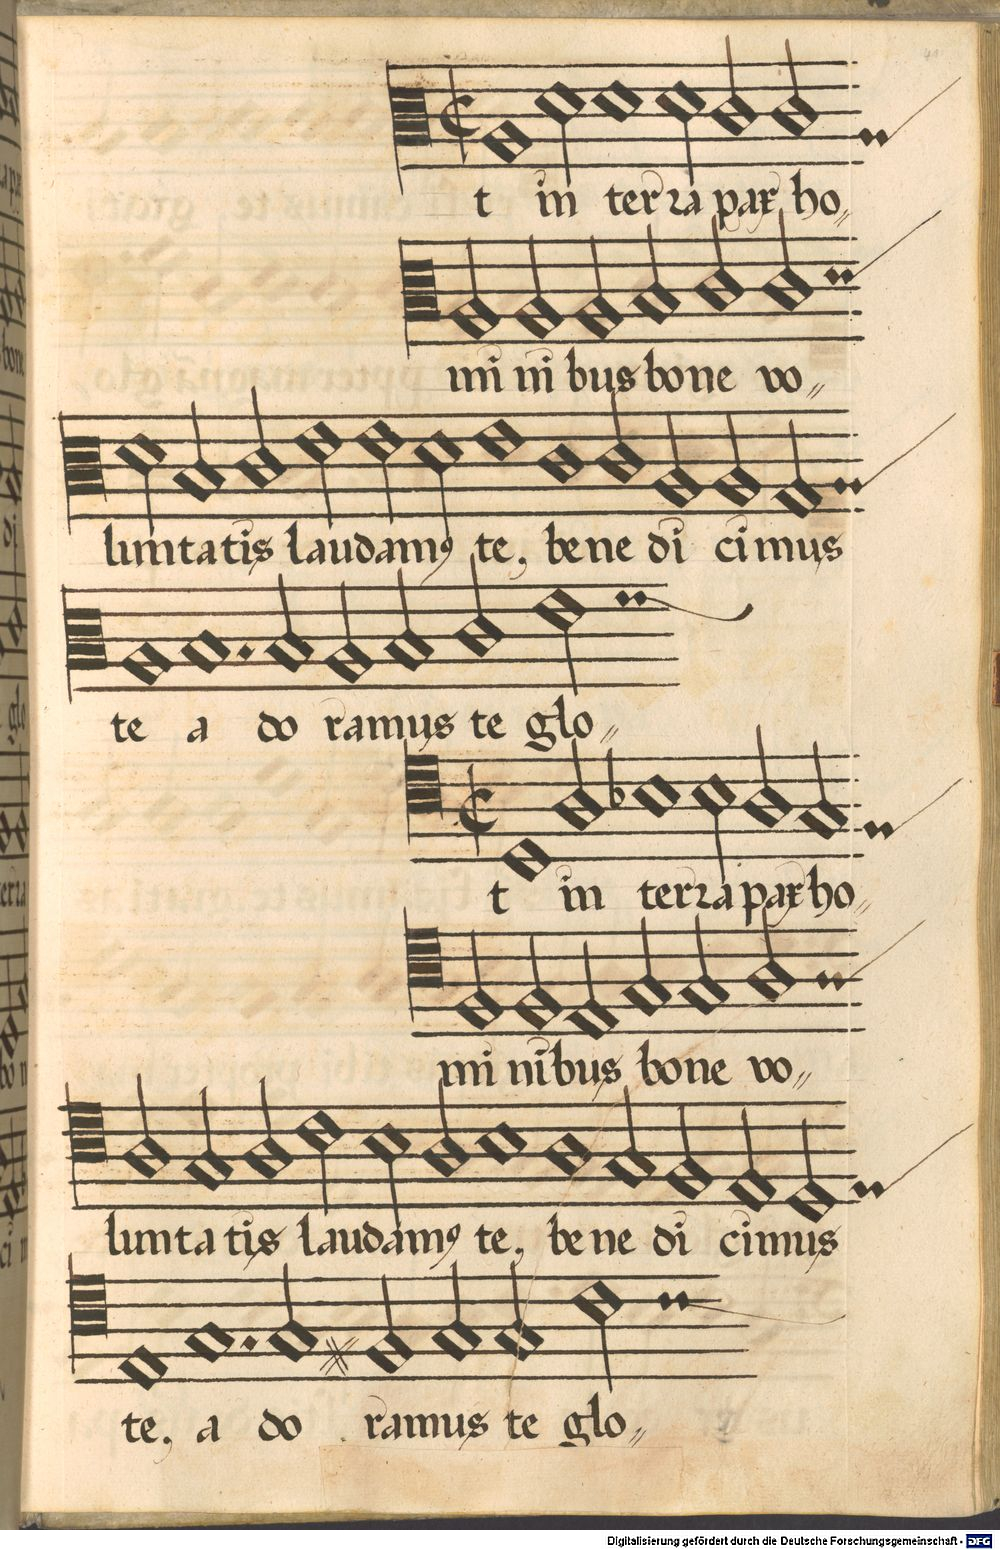 t in terra pax ho„
mi ni bus bone vo„
luntatis laudamꝰ te, bene di cimus
te a do ramus te glo„
t in terra pax ho„
mi nibus bone vo„
luntatis laudamꝰ te, bene di cimus
te, a do ramus te glo„
Digitalisierung gefördert durch die Deutsche Forschungsgemeinschaft - DFG